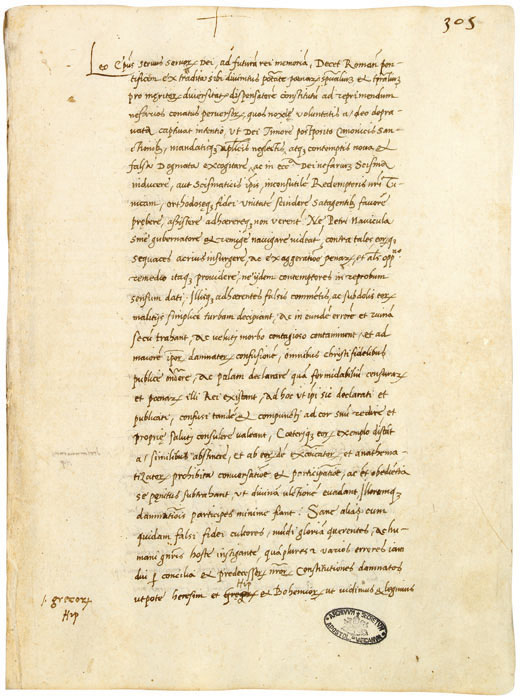 305
Leo Ep̃us seruus seruor̃ Dei, ad futurã rei memoriã, Decet Romanũ pon-
tificem ex tradita sibi diuinitus p̃otate poenar̃ spũaliũ et tp̃raliũ
pro meritor̃ diuersitate dispensatorẽ constitutũ ad reprimendum
nefarios conatus peruersor̃, quos noxiẽ voluntatis adeo depra-
uata captiuat intentio, ut Dei Timore postposito Canonicis San-
ctionib₃, mandatisq₃ ap̃licis neglectis, atq₃ contemptis noua et
falsa Dogmata excogitare, ac in eccã Dei nefariũ Scisma
inducere, aut Scismaticis ip̃is, inconsutilẽ Redemptoris nr̃i Tu-
nicam, orthodoxeq₃ fidei unitatẽ scindere satagentib₃ fauorẽ
prebere, assistere adhaerereq₃ non verent̃, Ne Petri Nauicula
sine gubernatore et remige nauigare videat̃, contra tales eorq₃
sequaces acrius insurgere, ac exaggeratione penar̃, et als opp.ⁿᵒ
remedio itaq₃ prouidere, ne ijdem contemptores in reprobum
sensum dati, Illisq₃ adhaerentes falsis commentis, ac subdolis eor̃
malitijs simplicẽ turbam decipiant, ac in eundẽ errorẽ et ruinã
secũ trahant, ac veluti morbo contagioso contaminent, et ad
maiorẽ ip̃or̃ damnator̃ confusionẽ, omnibus christi fidelibus
publicẽ ac palam declarare quã formidabiliũ censurar̃
et poenar̃ illi Rei existant, Ad hoc ut ip̃i sic declarati et
publicati, confusi tandẽ et compuncti ad cor suũ redire et
proprie saluti consulere valeant, Coeteriq₃ eor̃ exemplo discãt
a similibus abstinere, et ab eor̃ de excõicator̃, et anathema-
tizator̃ prohibita conuersatione et participatione, ac et obedientia
se penitus subtrahant ut diuinã ultionẽ euadant Illorumq₃
damnationis participes minime fiant: Sane alias cum
quidam falsi fidei cultores, mundi gloriã querentes, ac hu-
mani gñris hoste instigante, quãplures et varios errores iam
diu ꝑ concilia et predecessor̃ nr̃or̃ Constitutiones damnatos
Hip
utpote heresim et gregor̃ et Bohemior̃ ut vidimus et legimus
/. grecor̃
Hip
ARCHIVUM SECRETUM APOSTOL. VATICANUM